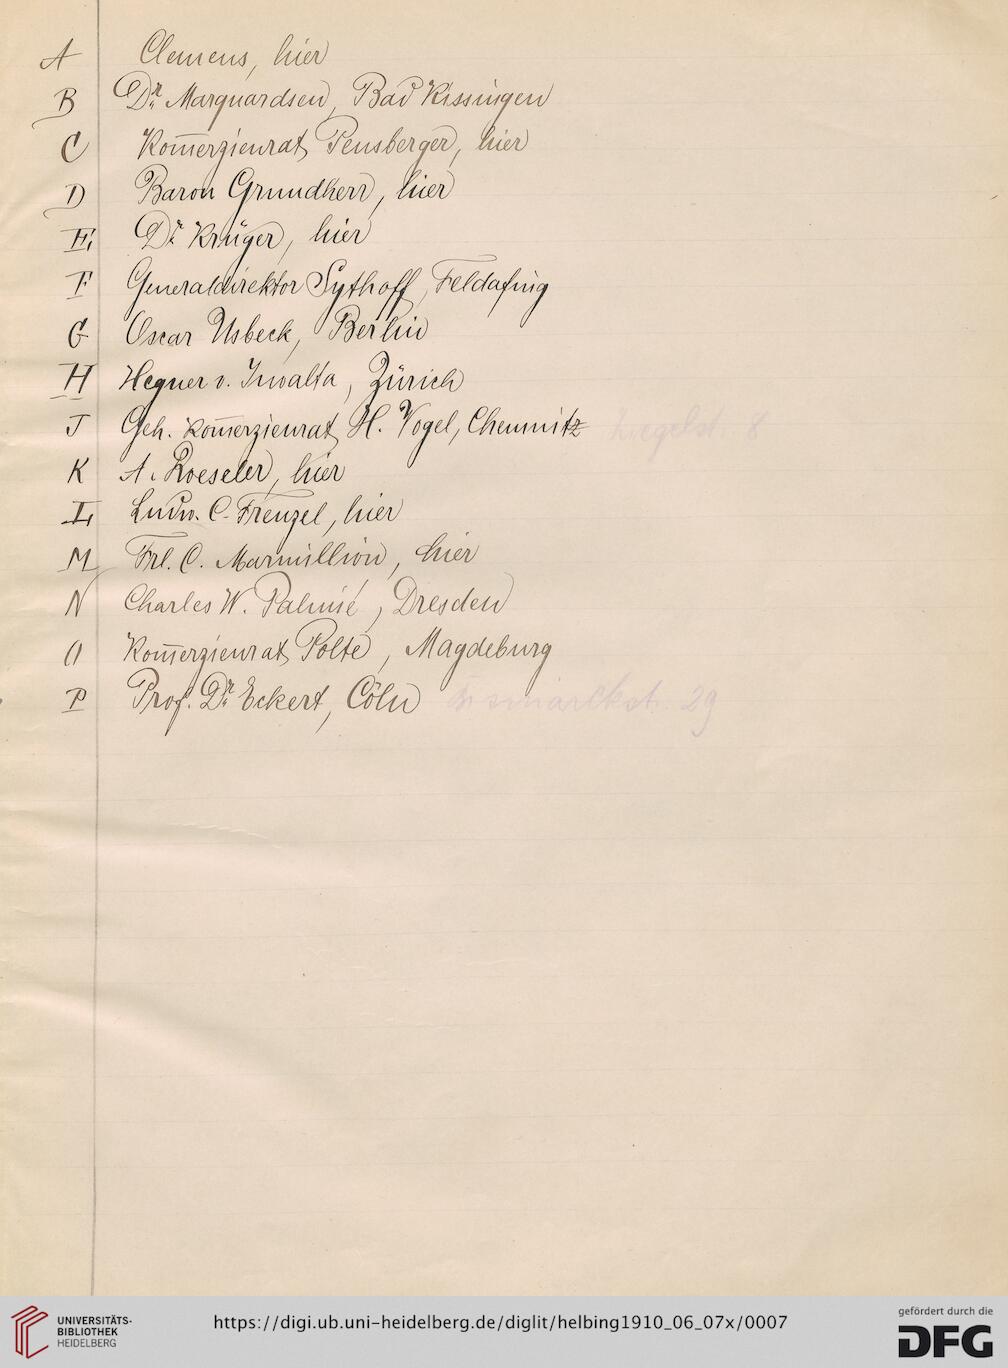 A Clemens, hier
B Dr. Marquardsen, Bad Kissingen
C Kom̄erzienrat Pensberger, hier
D Baron Grundherr, hier
E Dr. Krüger, hier
F Generaldirektor Sythoff, Feldafing
G Oscar Usbeck, Berlin
H Hegner v. Juvalta, Zürich
J Geh. Kom̄erzienrat H. Vogel, Chemnitz Ziegelst. 8
K A. Roeseler, hier
L Ludw. C. Frenzel, hier
M Frl. C. Marmillion, hier
N Charles W. Palmié, Dresden
O Kom̄erzienrat Polte, Magdeburg
P Prof. Dr. Eckert, Cöln Bismarckst. 29
UNIVERSITÄTS-
BIBLIOTHEK
HEIDELBERG
https://digi.ub.uni-heidelberg.de/diglit/helbing1910_06_07x/0007
gefördert durch die
DFG